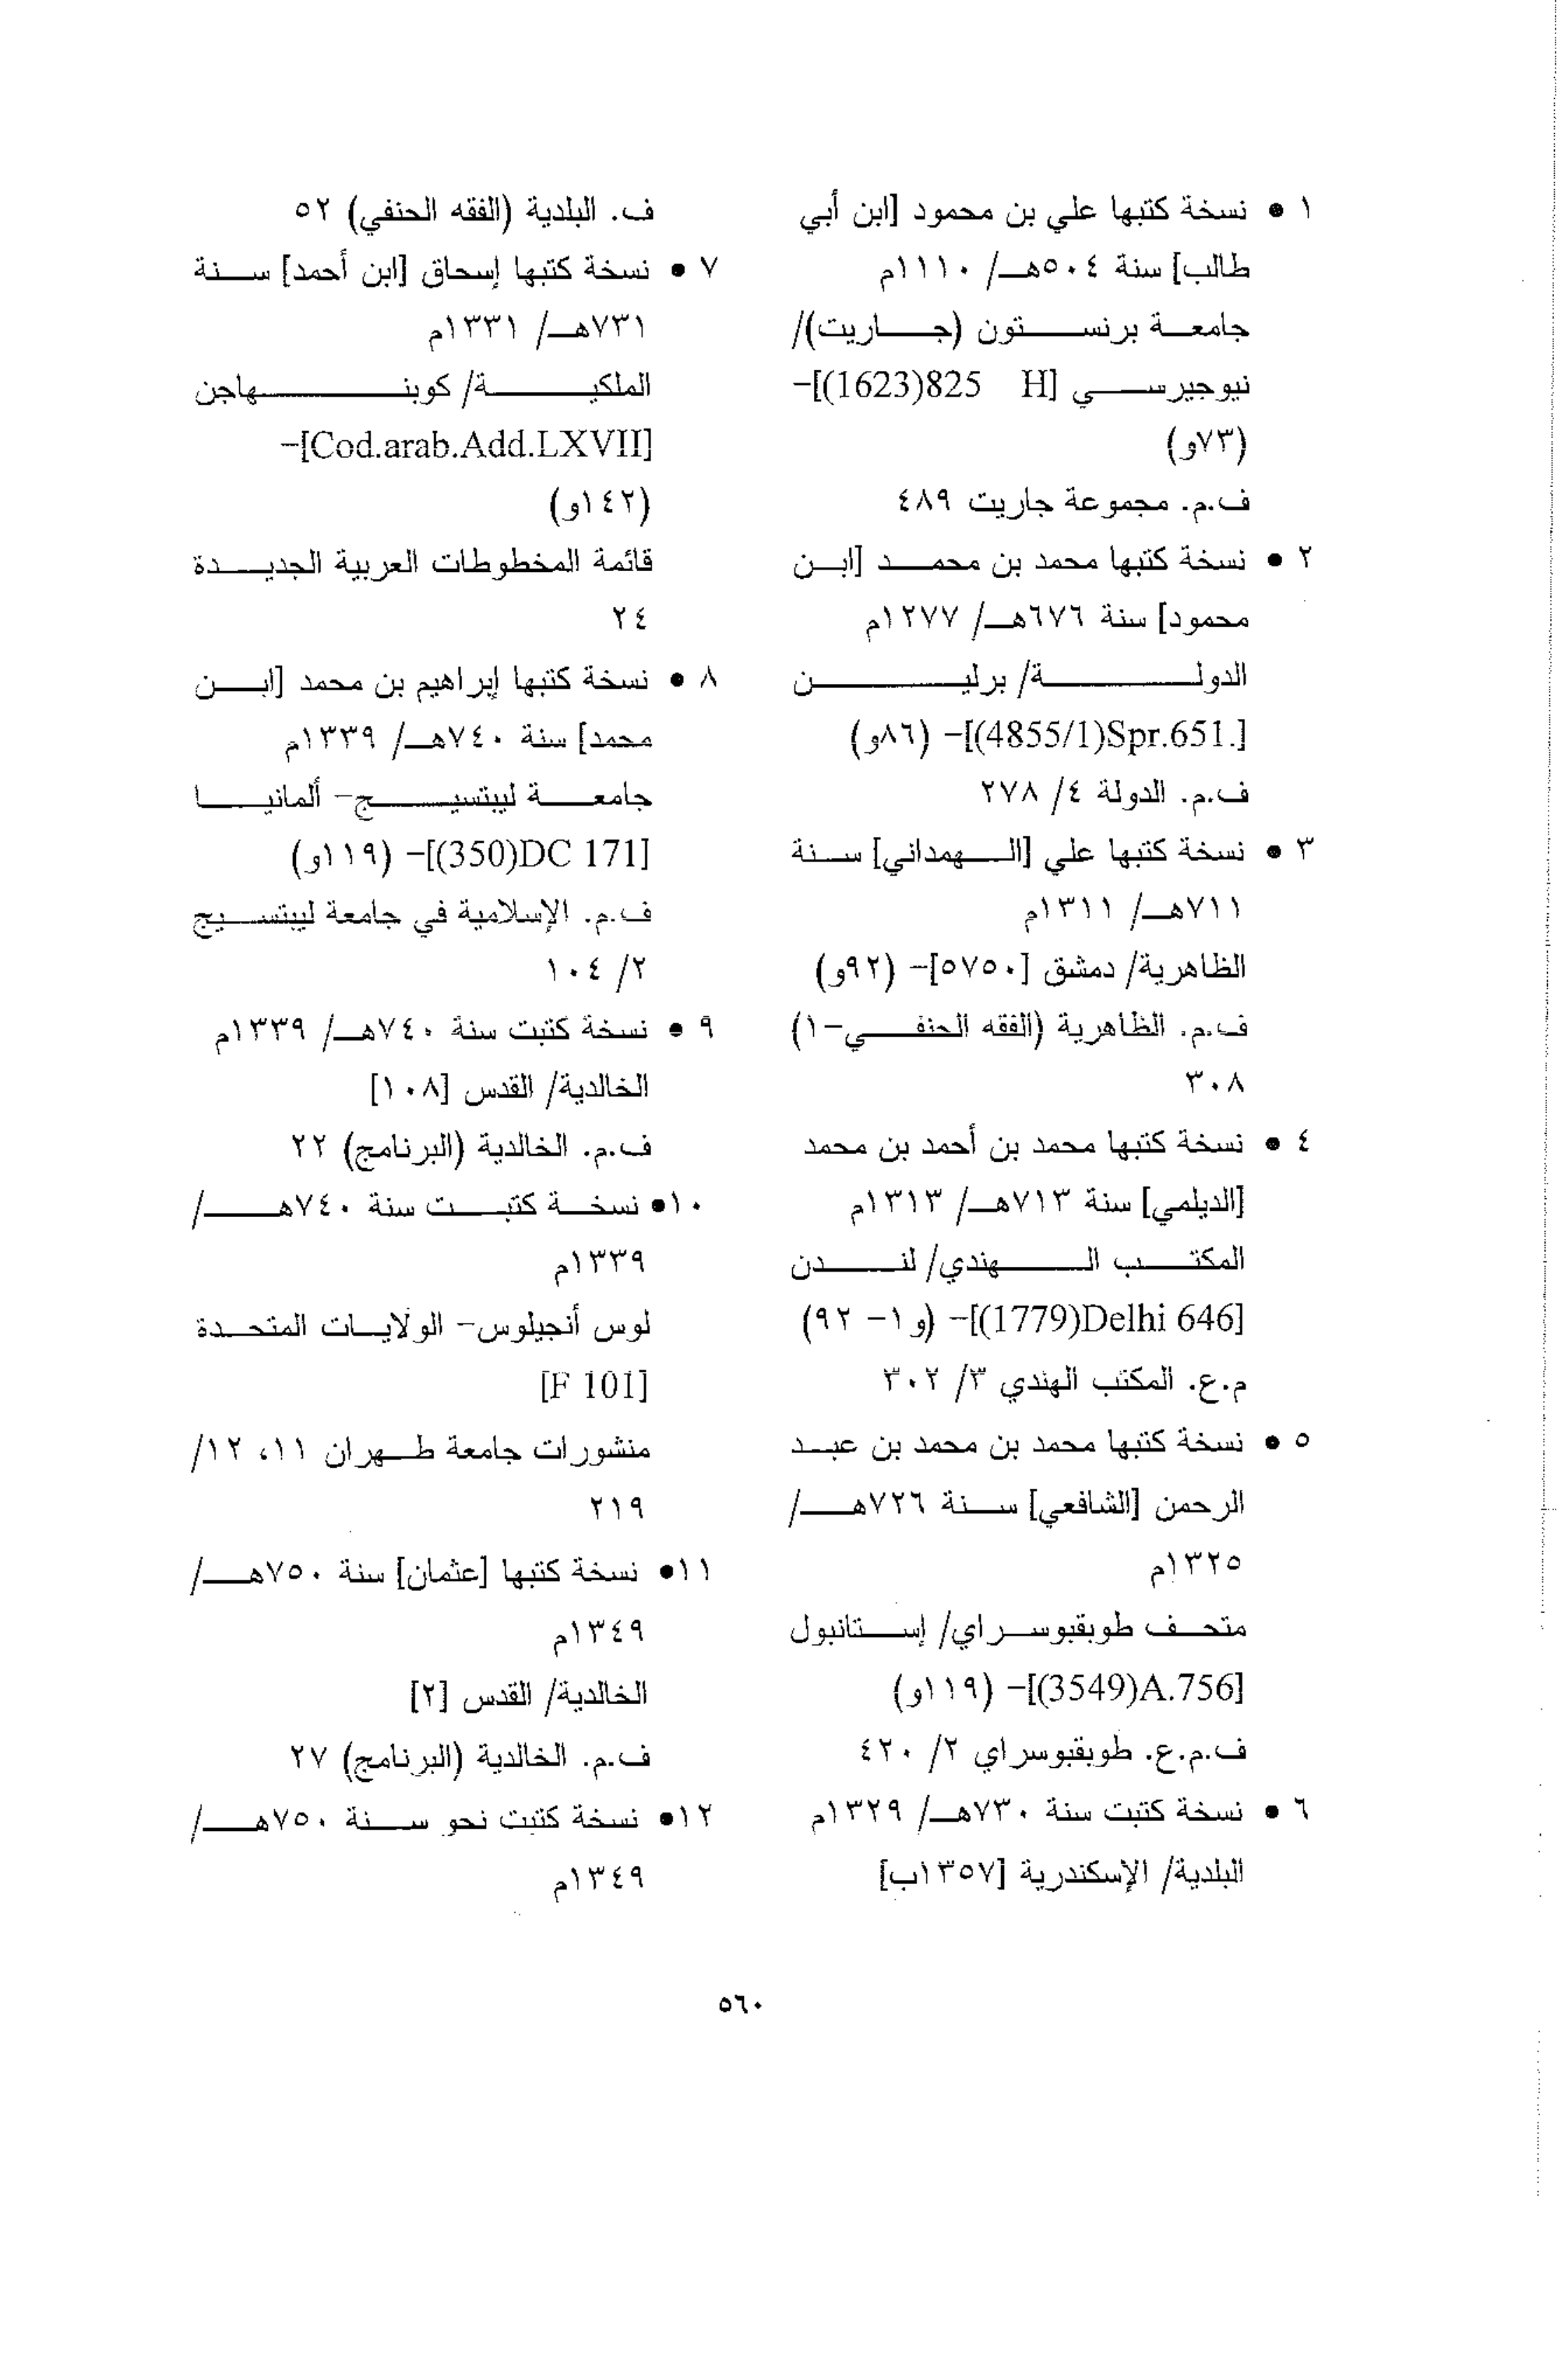 ١ • نسخة كتبها علي بن محمود [ابن أبي
طالب] سنة ٥٠٤هـ/ ١١١٠م
جامعة برنستون (جاريت)/
نيوجيرسي [H 825(1623)]-
(٧٣و)
ف.م. مجموعة جاريت ٤٨٩
٢ • نسخة كتبها محمد بن محمد [ابن
محمود] سنة ٦٧٦هـ/ ١٢٧٧م
الدولة/ برلين
[.Spr.651(4855/1)]- (٨٦و)
ف.م. الدولة ٤/ ٢٧٨
٣ • نسخة كتبها علي [الهمداني] سنة
٧١١هـ/ ١٣١١م
الظاهرية/ دمشق [٥٧٥٠]- (٩٢و)
ف.م. الظاهرية (الفقه الحنفي-١)
٣٠٨
٤ • نسخة كتبها محمد بن أحمد بن محمد
[الديلمي] سنة ٧١٣هـ/ ١٣١٣م
المكتب الهندي/ لندن
[Delhi 646(1779)]- (و١- ٩٢)
م.ع. المكتب الهندي ٣/ ٣٠٢
٥ • نسخة كتبها محمد بن محمد بن عبد
الرحمن [الشافعي] سنة ٧٢٦هـ/
١٣٢٥م
متحف طوبقبوسراي/ إستانبول
[A.756(3549)]- (١١٩و)
ف.م.ع. طوبقبوسراي ٢/ ٤٢٠
٦ • نسخة كتبت سنة ٧٣٠هـ/ ١٣٢٩م
البلدية/ الإسكندرية [١٣٥٧ب]
ف. البلدية (الفقه الحنفي) ٥٢
٧ • نسخة كتبها إسحاق [ابن أحمد] سنة
٧٣١هـ/ ١٣٣١م
الملكية/ كوبنهاجن
[Cod.arab.Add.LXVII]-
(١٤٢و)
قائمة المخطوطات العربية الجديدة
٢٤
٨ • نسخة كتبها إبراهيم بن محمد [ابن
محمد] سنة ٧٤٠هـ/ ١٣٣٩م
جامعة ليبتسيج- ألمانيا
[DC 171(350)]- (١١٩و)
ف.م. الإسلامية في جامعة ليبتسيج
٢/ ١٠٤
٩ • نسخة كتبت سنة ٧٤٠هـ/ ١٣٣٩م
الخالدية/ القدس [١٠٨]
ف.م. الخالدية (البرنامج) ٢٢
١٠• نسخة كتبت سنة ٧٤٠هـ/
١٣٣٩م
لوس أنجيلوس- الولايات المتحدة
[F 101]
منشورات جامعة طهران ١١، ١٢/
٢١٩
١١• نسخة كتبها [عثمان] سنة ٧٥٠هـ/
١٣٤٩م
الخالدية/ القدس [٢]
ف.م. الخالدية (البرنامج) ٢٧
١٢• نسخة كتبت نحو سنة ٧٥٠هـ/
١٣٤٩م
٥٦٠